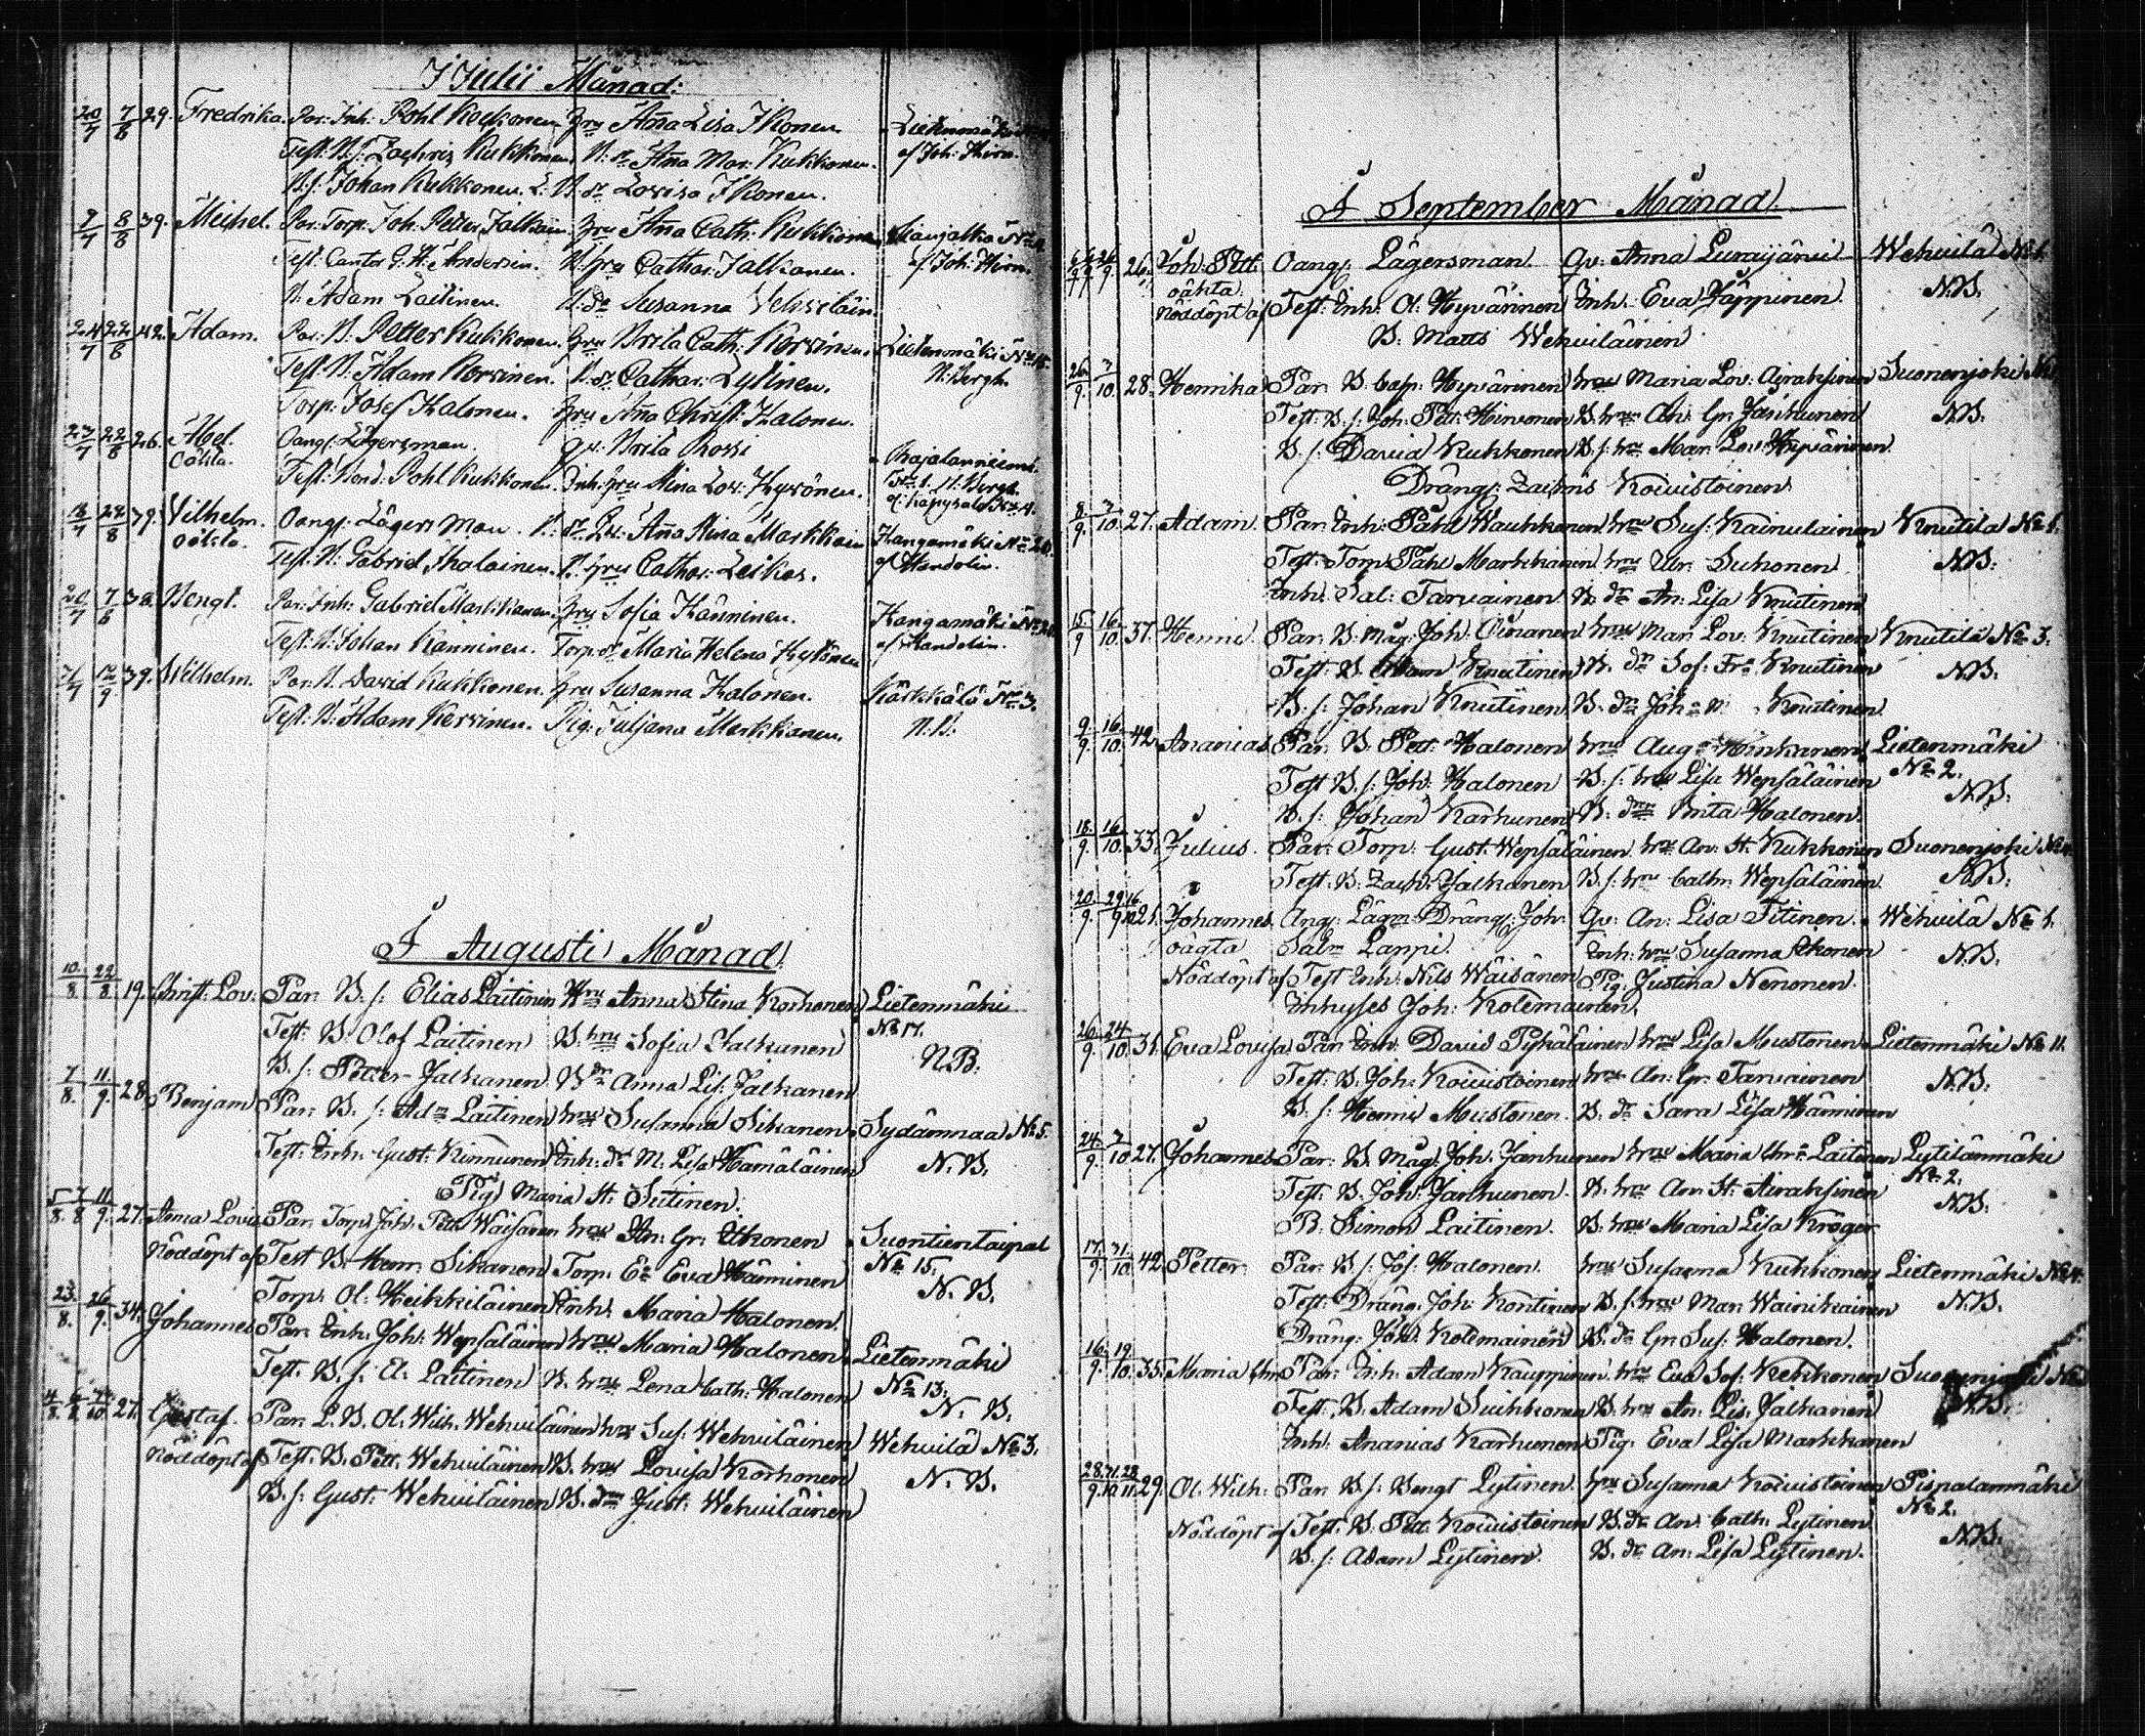 I Julii Månad:
20/7 7/8 29. Fredrika. Par: Inh: Pohl Kockonen hru Aña Lisa Ikonen Lietenmäki
Test: B.s: Zachris Kukkonen B: dr Aña Mar: Kukkonen. af Joh: Hirn.
B.s: Johan Kukkonen. B: dr Lovisa Ikonen.
7/7 8/8 39. Michel. Par: Torp: Joh: Petter Jalkain hru Aña Cath: Kukkonen
Test: Cantor G: A: Andersin. B: hru Cathar: Jalkanen. af Joh: Hirn.
B: Adam Laitinen. B: dr Susanna Vehviläin
24/7 22/8 42. Adam. Par: B: Petter Kukkonen. hru Brita Cath: Korvinen. Lietenmäki
Test: B: Adam Korvinen. B: dr Cathar: Lytinen. N: Bergh.
Torp: Josef Halonen. hru Aña Christ: Halonen.
23/7 22/8 26. Abel. Oangf: Lägersman. qv: Brita Rossi Rajalanniemi
oäkta. Test: Bond: Pohl Kukkonen. Inh: hru Stina Lov: Hyvönen. N: Bergh.
18/7 22/8 39. Vilhelm. Oangf: Lägers man. B: dr Qv: Aña Stina Markkain Kangamäki No 20.
oäkta. Test: B: Gabriel Skalainen. B: hru Cathar: Leikas. af Handolin.
20/7 7/8 38. Bengt. Par: Inh: Gabriel Markkanen. hru Sofia Känninen. Kangamäki No 20.
Test: B: Johan Känninen. Torp: dr Maria Helena Hyvönen af Handolin.
7/7 12/9 39. Wilhelm. Par: B. David Kukkonen. hru Susanna Halonen. Kärkkälä No 3.
Test: B: Adam Kervinen. Pig: Juljana Markkanen. N:B:
I Augusti Månad.
10./8. 22/8. 19. Christ: Lov: Par: B. s: Elias Laitinen Hru Anna Stina Korhonen Lietenmäki
Test: B. Olof Laitinen B: hru Sofia Jalkanen No 17.
B. s: Petter Jalkanen B dr Anna Lis: Jalkanen N.B:
7/8. 11./9. 28. Benjam Par: B. s: Adm Laitinen hru Susanna Sikanen Sydänmaa No 5.
Test: Inh: Gust: Kinnunen Inh: dr M: Lisa Hämäläinen N. B.
Pig: Maria St: Sutinen.
5/8. 7/8 11./9. 27. Anna Lovis: Par: Torp: Joh: Pett: Wäisänen hru An: Gr: Itkonen Suontientaipal
Nöddöpt af Test: B: Henr: Sikanen Torp: E: Eva Hänninen No 15.
Torp: Ol: Heikkiläinen Inh: Maria Halonen. N. B.
23./8. 26/9. 34. Johannes Par: Inh: Joh: Wepsäläinen hru Maria Halonen Lietenmäki
Test: B. s: El: Laitinen B. hru Lena Cath: Halonen No 13.
N. B.
27. Gustaf. Par: L. B. Ol: Wilh: Wehviläinen hru Sus: Wehviläinen Wehvilä No 3.
Nöddöpt af Test: B. Pett: Wehviläinen B. hru Lovisa Korhonen N. B.
B. s: Gust: Wehviläinen B. dr Just: Wehviläinen
I September Månad.
26. Joh: Pett: Oangf: Lägersman. Qv: Anna Wehvilä No 1.
oäkta. Nöddöpt af Test: Inh: Ol: Hyvärinen Inh: Eva Jäppinen. N.B.
B: Matts Wehviläinen
26/9. 7/10. 28. Henrika Par: B. Casp: Hyvärinen hru Maria Lov: Ayräksinen Suonenjoki
Test: B. s: Joh: Pett: Hirvonen B. hru An: Gr: Jänhunen N.B.
B. s: David Kukkonen B. s: hru Mar: Lov: Hyvärinen
Dräng: Zachris Koivistoinen
8./9. 7/10. 27. Adam. Par: Inh: Påhl Wauhkonen hru Sus: Kainulainen Knutila No 1.
Test: Torp: Påhl Markkanen hru Ulr: Suhonen N.B:
Inh: Sal: Tarvainen B. dr An: Lisa Knutinen
15./9 16./10. 37. Henric Par: B. måg: Joh: Oinonen hru Mar: Lov: Knutinen Knutila No 3.
Test: B. Adam Knutinen B. dr Sof: Fr: Knutinen N.B.
B. s: Johan Knutinen B. dr Knutinen
9./9. 16./10. 42. Ananias Par: B. Pett: Halonen hru Aug: Hinkanen Lietenmäki
Test: B. s: Joh: Halonen B. s: hru Lisa Wepsäläinen No 2.
B. s: Johan Karhunen B: dr Brita Halonen. N.B.
18./9. 16/10. 33. Julius. Par: Torp: Gust: Wepsäläinen. hru An: St: Kukkonen Suonenjoki
Test: B. Zach: Jalkanen B. s: hru Cathr: Wepsäläinen N.B.
20./9. 29/9 16/10 21. Johannes Ang: Lägm: Dräng: Joh: Qv: An: Lisa Titinen. Wehvilä No 1.
oägta Salm Lappi. Inh: hru Susanna Ikonen N.B.
Nöddöpt af Test: Inh: Nils Wäisänen Pig: Justina Nenonen.
Inhyses Joh: Kolemainen.
26./9. 24/10. 31. Eva Lovisa Par: Inh: David Pykäläinen hru Lisa Mustonen Lietenmäki No 11.
Test: B. Joh: Koivistoinen hru An: Gr: Tarvainen N.B.
B. s: Henric Mustonen. B. dr Sara Lisa Hänninen
24./9. 7/10 27. Johannes Par: B. Måg: Joh: Jänhunen hru Maria Chr: Laitinen Lytilänmäki
Test: B. Joh: Jänhunen. B. hru An: St: Airaksinen No 2.
B. Simon Laitinen. B. hru Maria Lisa Kröger N.B.
17./9. 31./10. 42. Petter. Par: B. s: Jos: Halonen. hru Susanna Kukkonen Lietenmäki
Test: Dräng: Joh: Kontinen B. s: hru Mar: Wainikainen N.B.
Dräng: Joh: Kolemainen B. dr Gr: Sus: Halonen.
16./9. 19./10. 35. Maria Chr: Par: Inh: Adam Kauppinen. hru Eva Sof: Kekkonen
Test: B. Adam Suihkonen B. hru An: Lis: Jalkanen N.B.
Inh: Ananias Karhunen Pig: Eva Lisa Markkanen
28./9. 31./10. 28./11. 29. Ol: Wilh: Par: B. s: Bengt Lytinen. hru Susanna Koivistoinen Pispalanmäki
Nöddöpt af Test: B. Pett: Koivistoinen B. dr An: Cath: Lytinen No 2.
B. s: Adam Lytinen. B. dr An: Lisa Lytinen. N.B.